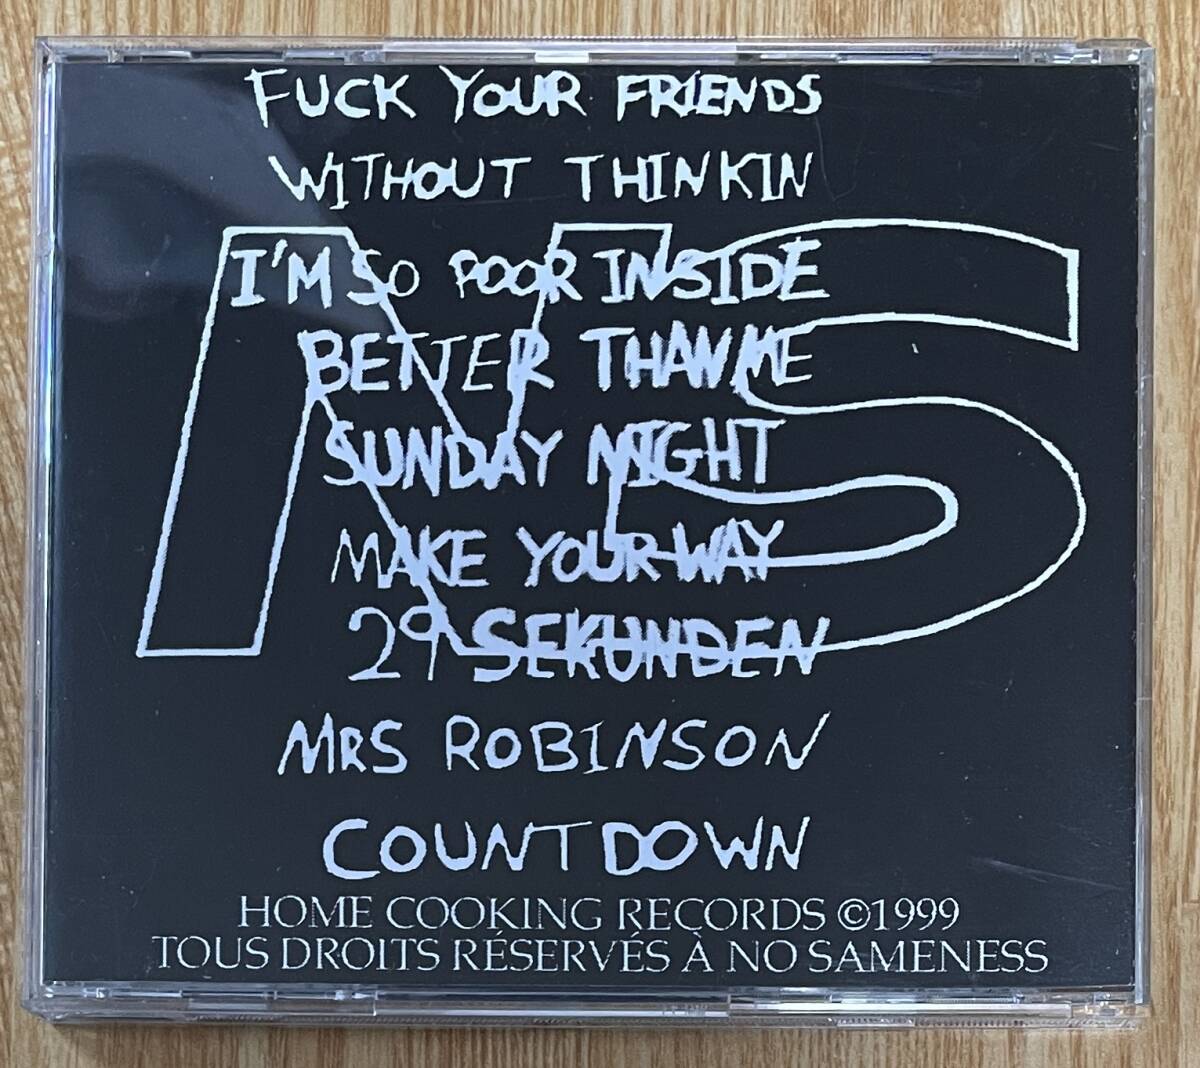 FUCK YOUR FRIENDS
WITHOUT THINKIN
I'M SO POOR INSIDE
BETTER THAN ME
SUNDAY NIGHT
MAKE YOUR WAY
29 SEKUNDEN
MRS ROBINSON
COUNTDOWN
NS
HOME COOKING RECORDS ©1999
TOUS DROITS RÉSERVÉS À NO SAMENESS